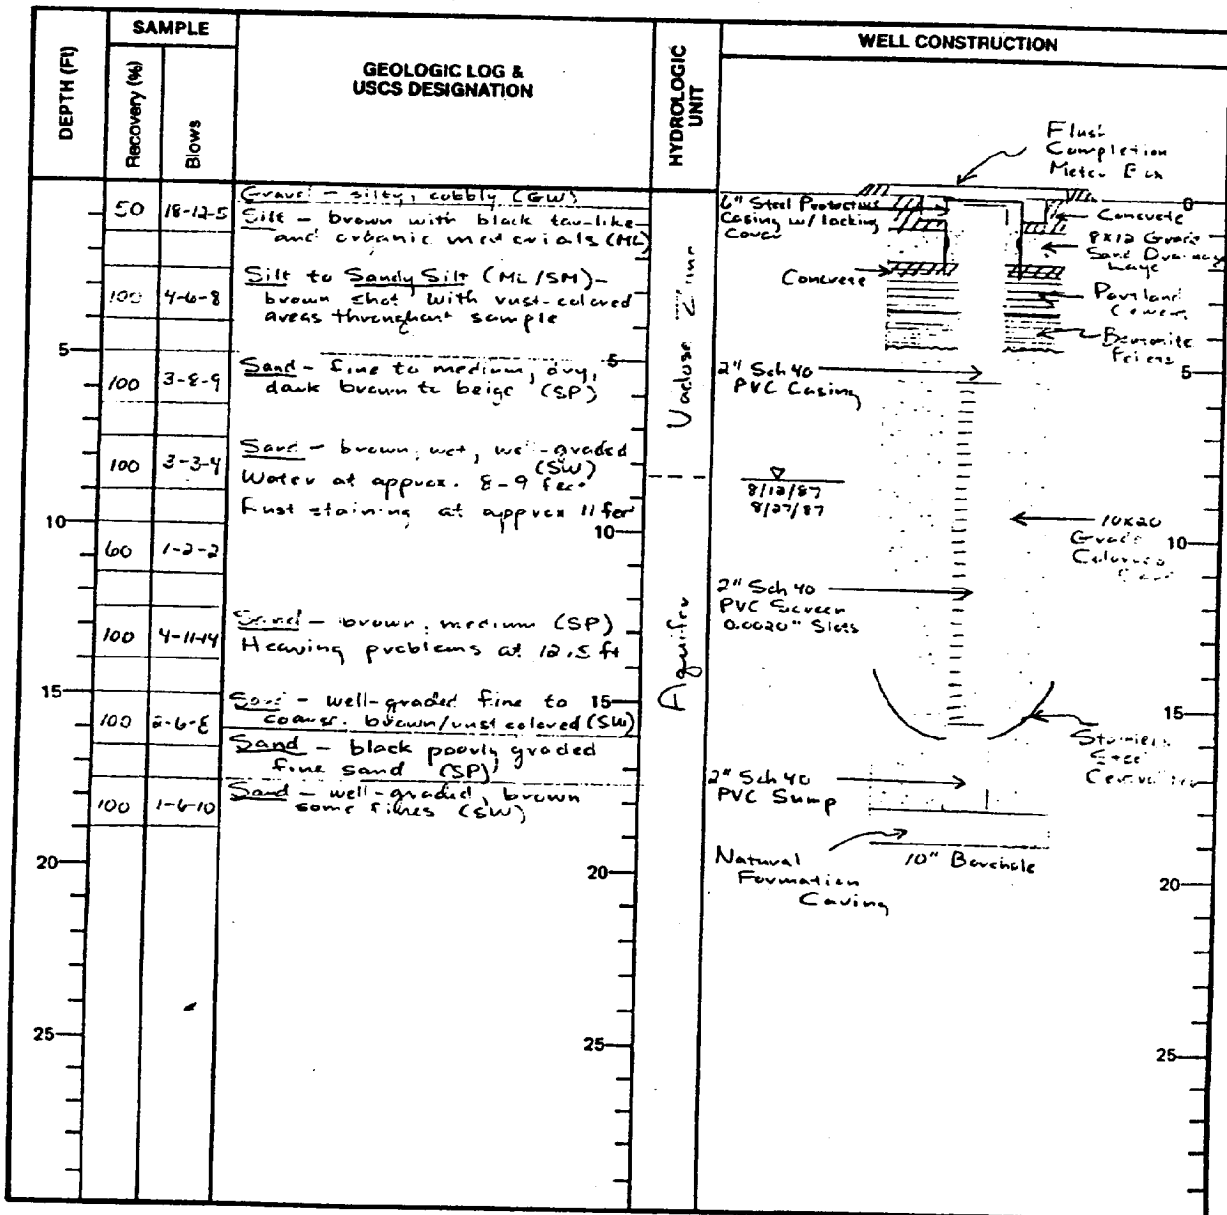 DEPTH (Ft)
SAMPLE
Recovery (%)
Blows
GEOLOGIC LOG &
USCS DESIGNATION
HYDROLOGIC
UNIT
WELL CONSTRUCTION
50 18-12-5
Gravel - silty, cobbly (GW)
Silt - brown with black tar-like
and organic materials (ML)
100 4-6-8
Silt to Sandy Silt (ML/SM)-
brown with rust-colored
areas throughout sample
5
5
100 3-8-9
Sand - fine to medium, dry,
dark brown to beige (SP)
100 3-3-4
Sand - brown, wet, well-graded
(SW)
Water at approx. 8-9 feet
staining at approx 11 feet
10
10
60 1-2-2
100 4-11-14
Sand - brown, medium (SP)
Heaving problems at 12.5 ft
15
15
100 2-6-8
Sand - well-graded fine to
coarse, brown/rust colored (SW)
Sand - black poorly graded
fine sand (SP)
100 1-6-10
Sand - well-graded, brown
some fines (SW)
20
20
25
25
Vadose Zone
Aquifer
Flush
Completion
Meter Box
0
6" Steel Protective
Casing w/ locking
Cover
Concrete
8x12 Grade
Sand Drainage
Concrete
Portland
Cement
Bentonite
5
2" Sch 40
PVC Casing
8/12/87
8/27/87
10x20
Grade
Colorado
10
2" Sch 40
PVC Screen
0.0020" Slots
15
Stainless
Steel
Centralizer
2" Sch 40
PVC Sump
Natural
Formation
Caving
10" Borehole
20
25